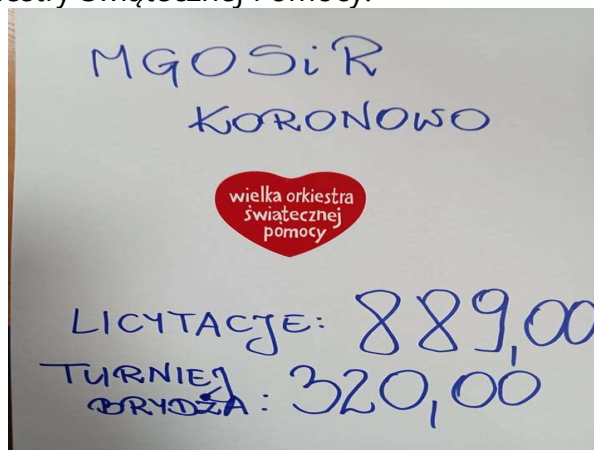 MGOSiR
KORONOWO
wielka orkiestra
świątecznej
pomocy
LICYTACJE: 889,00
TURNIEJ
BRYDŻA: 320,00